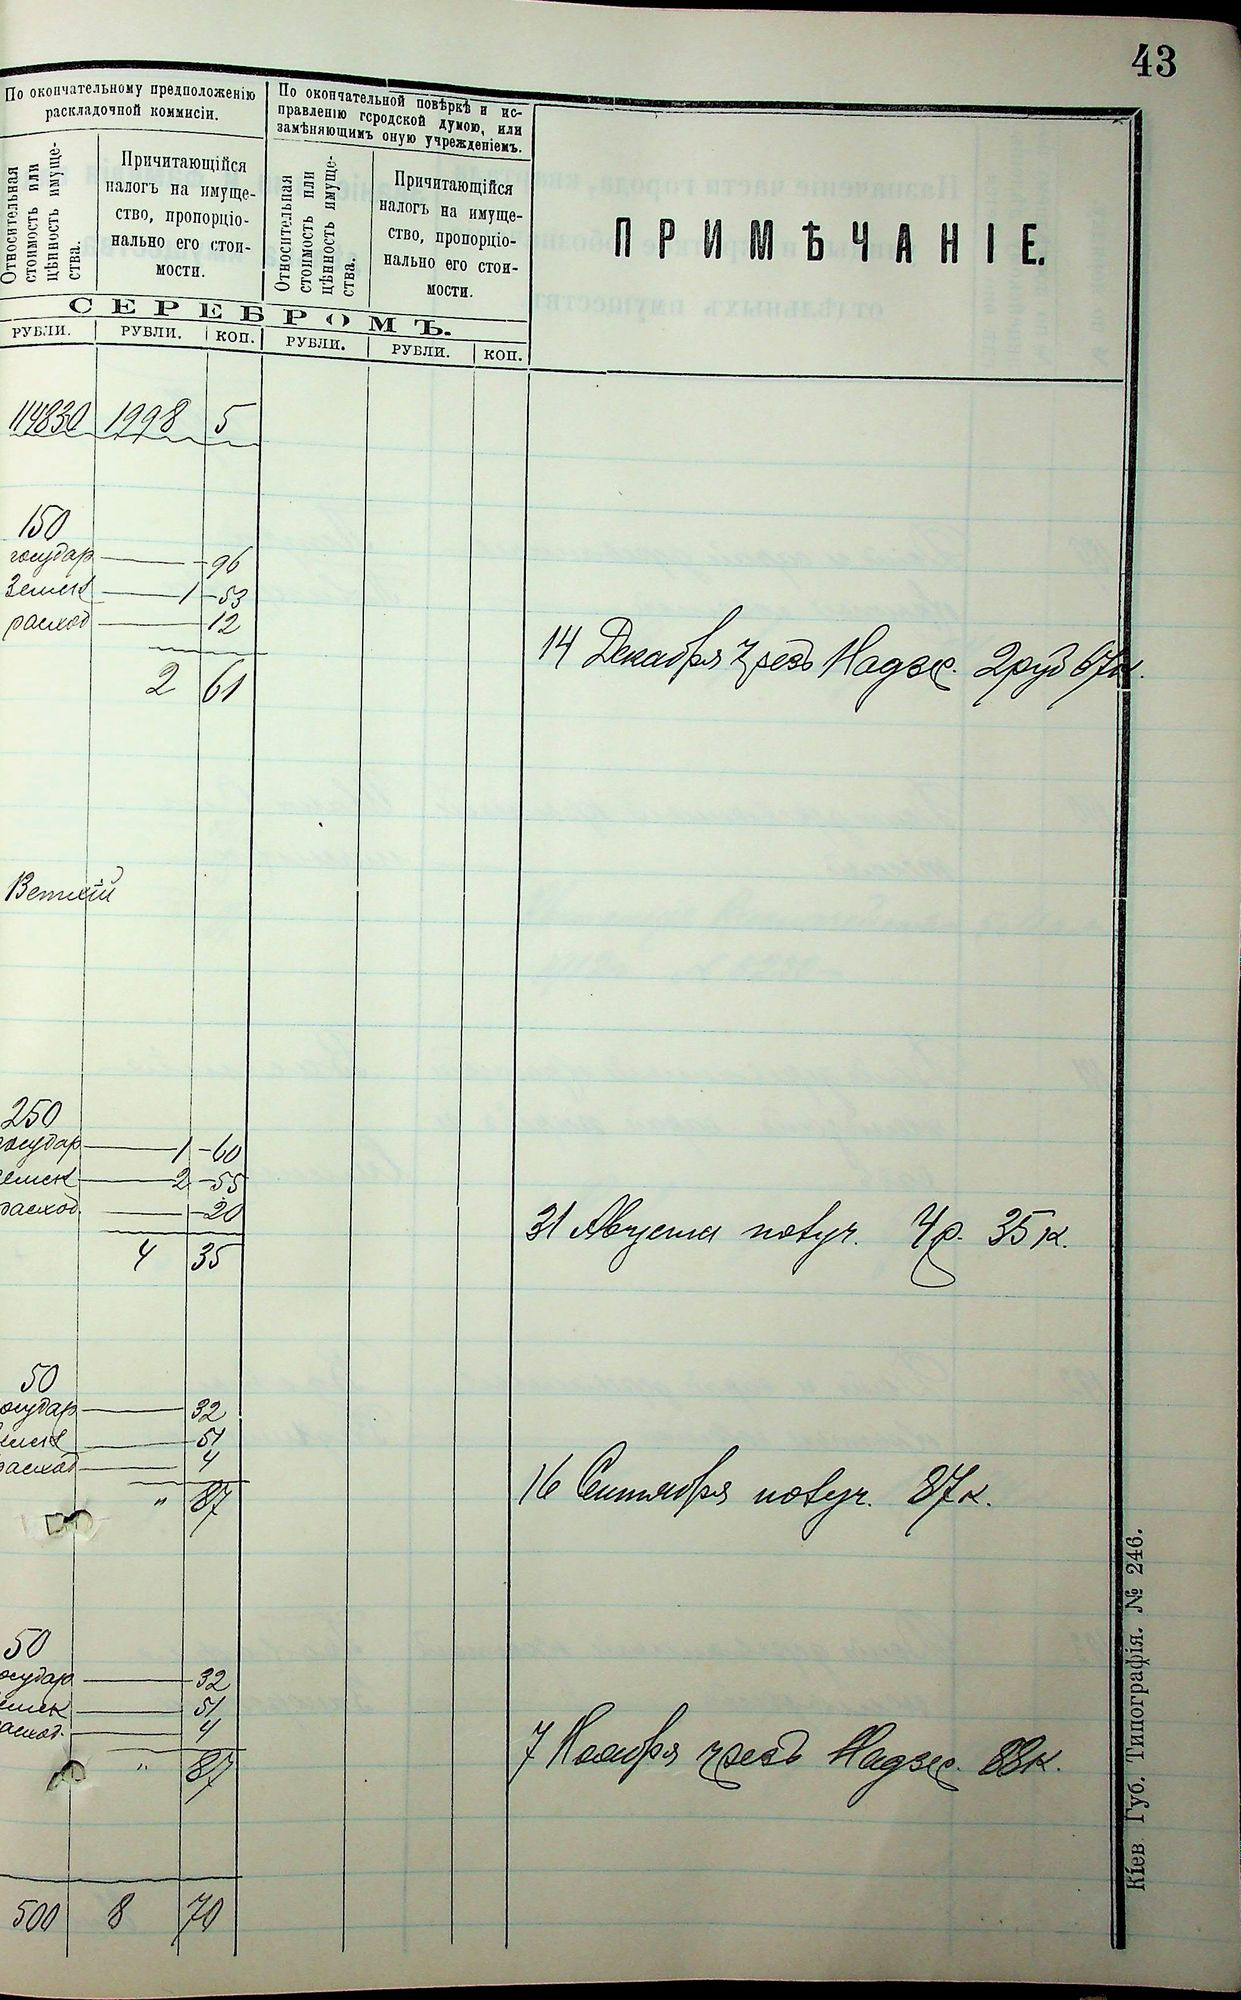 43
По окончательному предположенію
раскладочной коммисіи.
По окончательной повѣркѣ и ис-
правленію городской думою, или
замѣняющимъ оную учрежденіемъ.
Относительная
стоимость или
цѣнность имуще-
ства.
Причитающійся
налогъ на имуще-
ство, пропорціо-
нально его стои-
мости.
Относительная
стоимость или
цѣнность имуще-
ства.
Причитающійся
налогъ на имуще-
ство, пропорціо-
нально его стои-
мости.
ПРИМѢЧАНІЕ.
СЕРЕБРОМЪ.
РУБЛИ. РУБЛИ. КОП. РУБЛИ. РУБЛИ. КОП.
114830 1998 5
150
государ 96
Земск 1 53
расход 12
2 61
14 Декабря чрезъ Надзс. 2 руб 67 к.
Ветхій
250
государ 1 60
земск 2 55
расход. 20
4 35
31 Августа 4 р. 35 к.
50
государ 32
земск 51
расход 4
" 87
16 Сентября 87 к.
50
государ 32
земск 51
расход. 4
" 87
7 Ноября чрезъ Надзс. 88 к.
500 8 70
Кіев. Губ. Типографія. № 246.